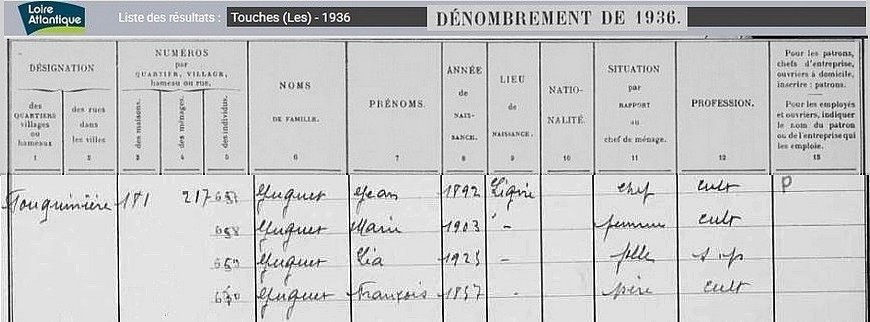 Loire
Atlantique
Liste des résultats : Touches (Les) - 1936
DÉNOMBREMENT DE 1936.
DÉSIGNATION
des QUARTIERS villages ou hameaux
1
des rues dans les villes
2
NUMÉROS par QUARTIER, VILLAGE, hameau ou rue.
des maisons.
3
des ménages.
4
des individus.
5
NOMS DE FAMILLE.
6
PRÉNOMS.
7
ANNÉE de NAIS- SANCE.
8
LIEU de NAISSANCE.
9
NATIO- NALITÉ.
10
SITUATION par RAPPORT au chef de ménage.
11
PROFESSION.
12
Pour les patrons, chefs d'entreprise, ouvriers à domicile, inscrire : patrons.
Pour les employés et ouvriers, indiquer le nom du patron ou de l'entreprise qui les emploie.
13
181 217 657 Huguet Jean 1892 Ligné chef cult P
658 Huguet Marie 1903 - femme cult
659 Huguet Léa 1925 - fille s p
660 Huguet François 1857 - père cult